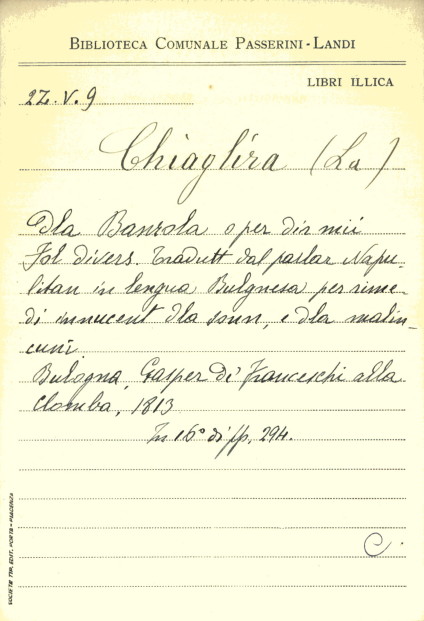 BIBLIOTECA COMUNALE PASSERINI-LANDI
LIBRI ILLICA
2Z. V. 9
Chiaglira (La)
Dla Banzola o per dir mii
Fol divers. Tradutt dal parlar Napu-
litan in lengua Bulgnesa per rime-
di innucent dla sonn, e dla malin-
cunì.
Bulogna, Gasper de' Franceschi alla
Clomba, 1813
In 16° di pp. 294.
C.
SOCIETÀ TIP. EDIT. PORTA - PIACENZA